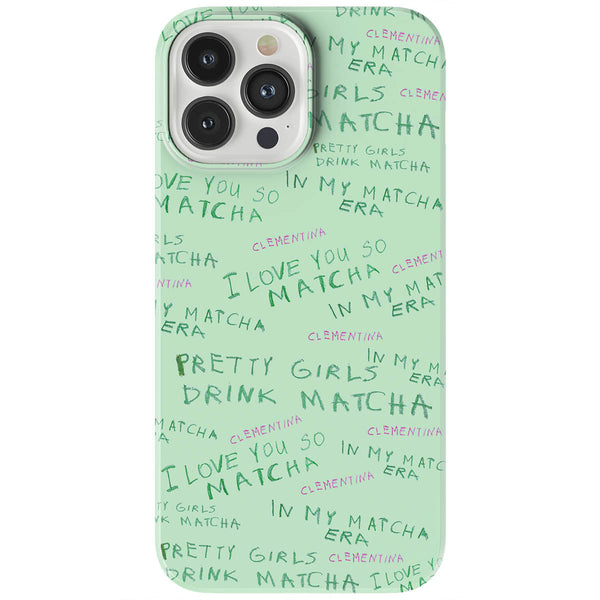 I LOVE YOU SO
DRINK MATCHA
CLEMENTINA
IN MY MATCHA
ERA
GIRLS
CLEMEN
MATCHA
PRETTY GIRLS
DRINK MATCHA
LOVE YOU SO
MATCHA
IN MY MATCHA
ERA
RLS
ATCHA
CLEMENTINA
I LOVE YOU SO
MATCHA
CLEMENT
NTINA
IN MY MAT
ERA
Y MATCHA
ERA
CLEMENTINA
PRETTY GIRLS
DRINK MATCHA
IN MY MA
ERA
MATCHA
CLEMENTINA
CLEMENTINA
I LOVE YOU SO
MATCHA
IN MY MATC
ERA
CLEMENTINA
TY GIRLS
NK MATCHA
IN MY MATCHA
ERA
PRETTY GIRLS
DRINK MATCHA
CLEMENTINA
I LOVE YO
MATCHA